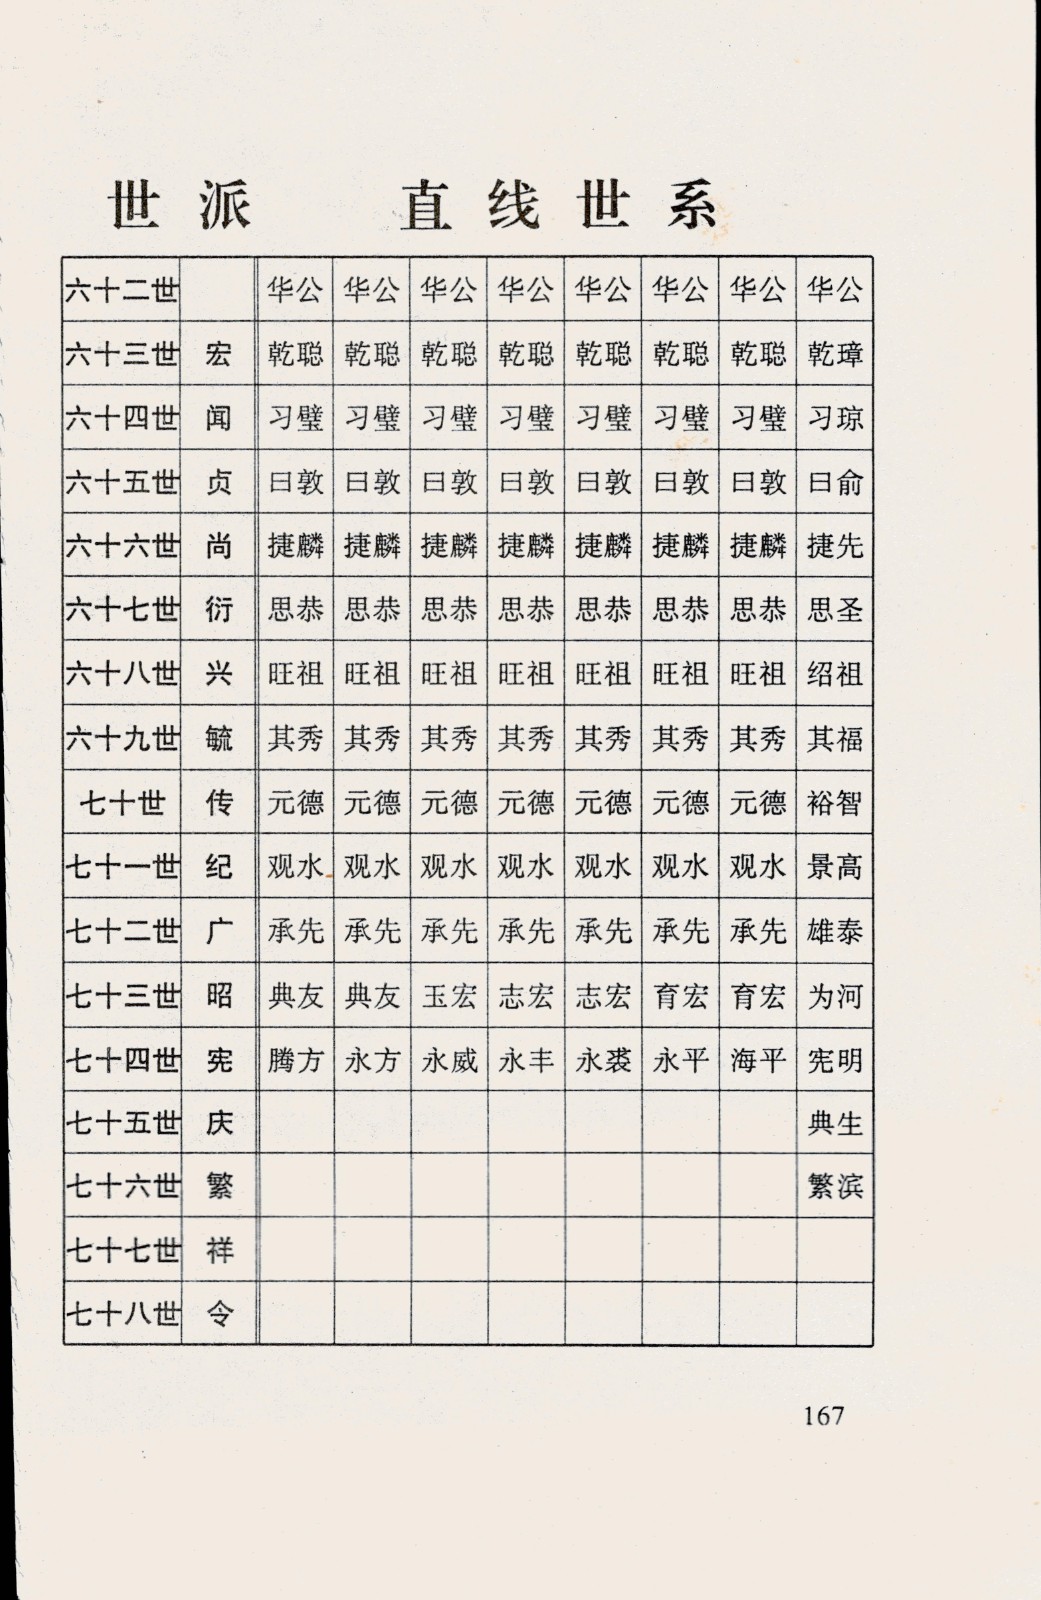 世派 直线世系
六十二世 华公 华公 华公 华公 华公 华公 华公 华公
六十三世 宏 乾聪 乾聪 乾聪 乾聪 乾聪 乾聪 乾聪 乾璋
六十四世 闻 习璧 习璧 习璧 习璧 习璧 习璧 习璧 习琼
六十五世 贞 曰敦 曰敦 曰敦 曰敦 曰敦 曰敦 曰敦 曰俞
六十六世 尚 捷麟 捷麟 捷麟 捷麟 捷麟 捷麟 捷麟 捷先
六十七世 衍 思恭 思恭 思恭 思恭 思恭 思恭 思恭 思圣
六十八世 兴 旺祖 旺祖 旺祖 旺祖 旺祖 旺祖 旺祖 绍祖
六十九世 毓 其秀 其秀 其秀 其秀 其秀 其秀 其秀 其福
七十世 传 元德 元德 元德 元德 元德 元德 元德 裕智
七十一世 纪 观水 观水 观水 观水 观水 观水 观水 景高
七十二世 广 承先 承先 承先 承先 承先 承先 承先 雄泰
七十三世 昭 典友 典友 玉宏 志宏 志宏 育宏 育宏 为河
七十四世 宪 腾方 永方 永威 永丰 永裘 永平 海平 宪明
七十五世 庆 典生
七十六世 繁 繁滨
七十七世 祥
七十八世 令
167